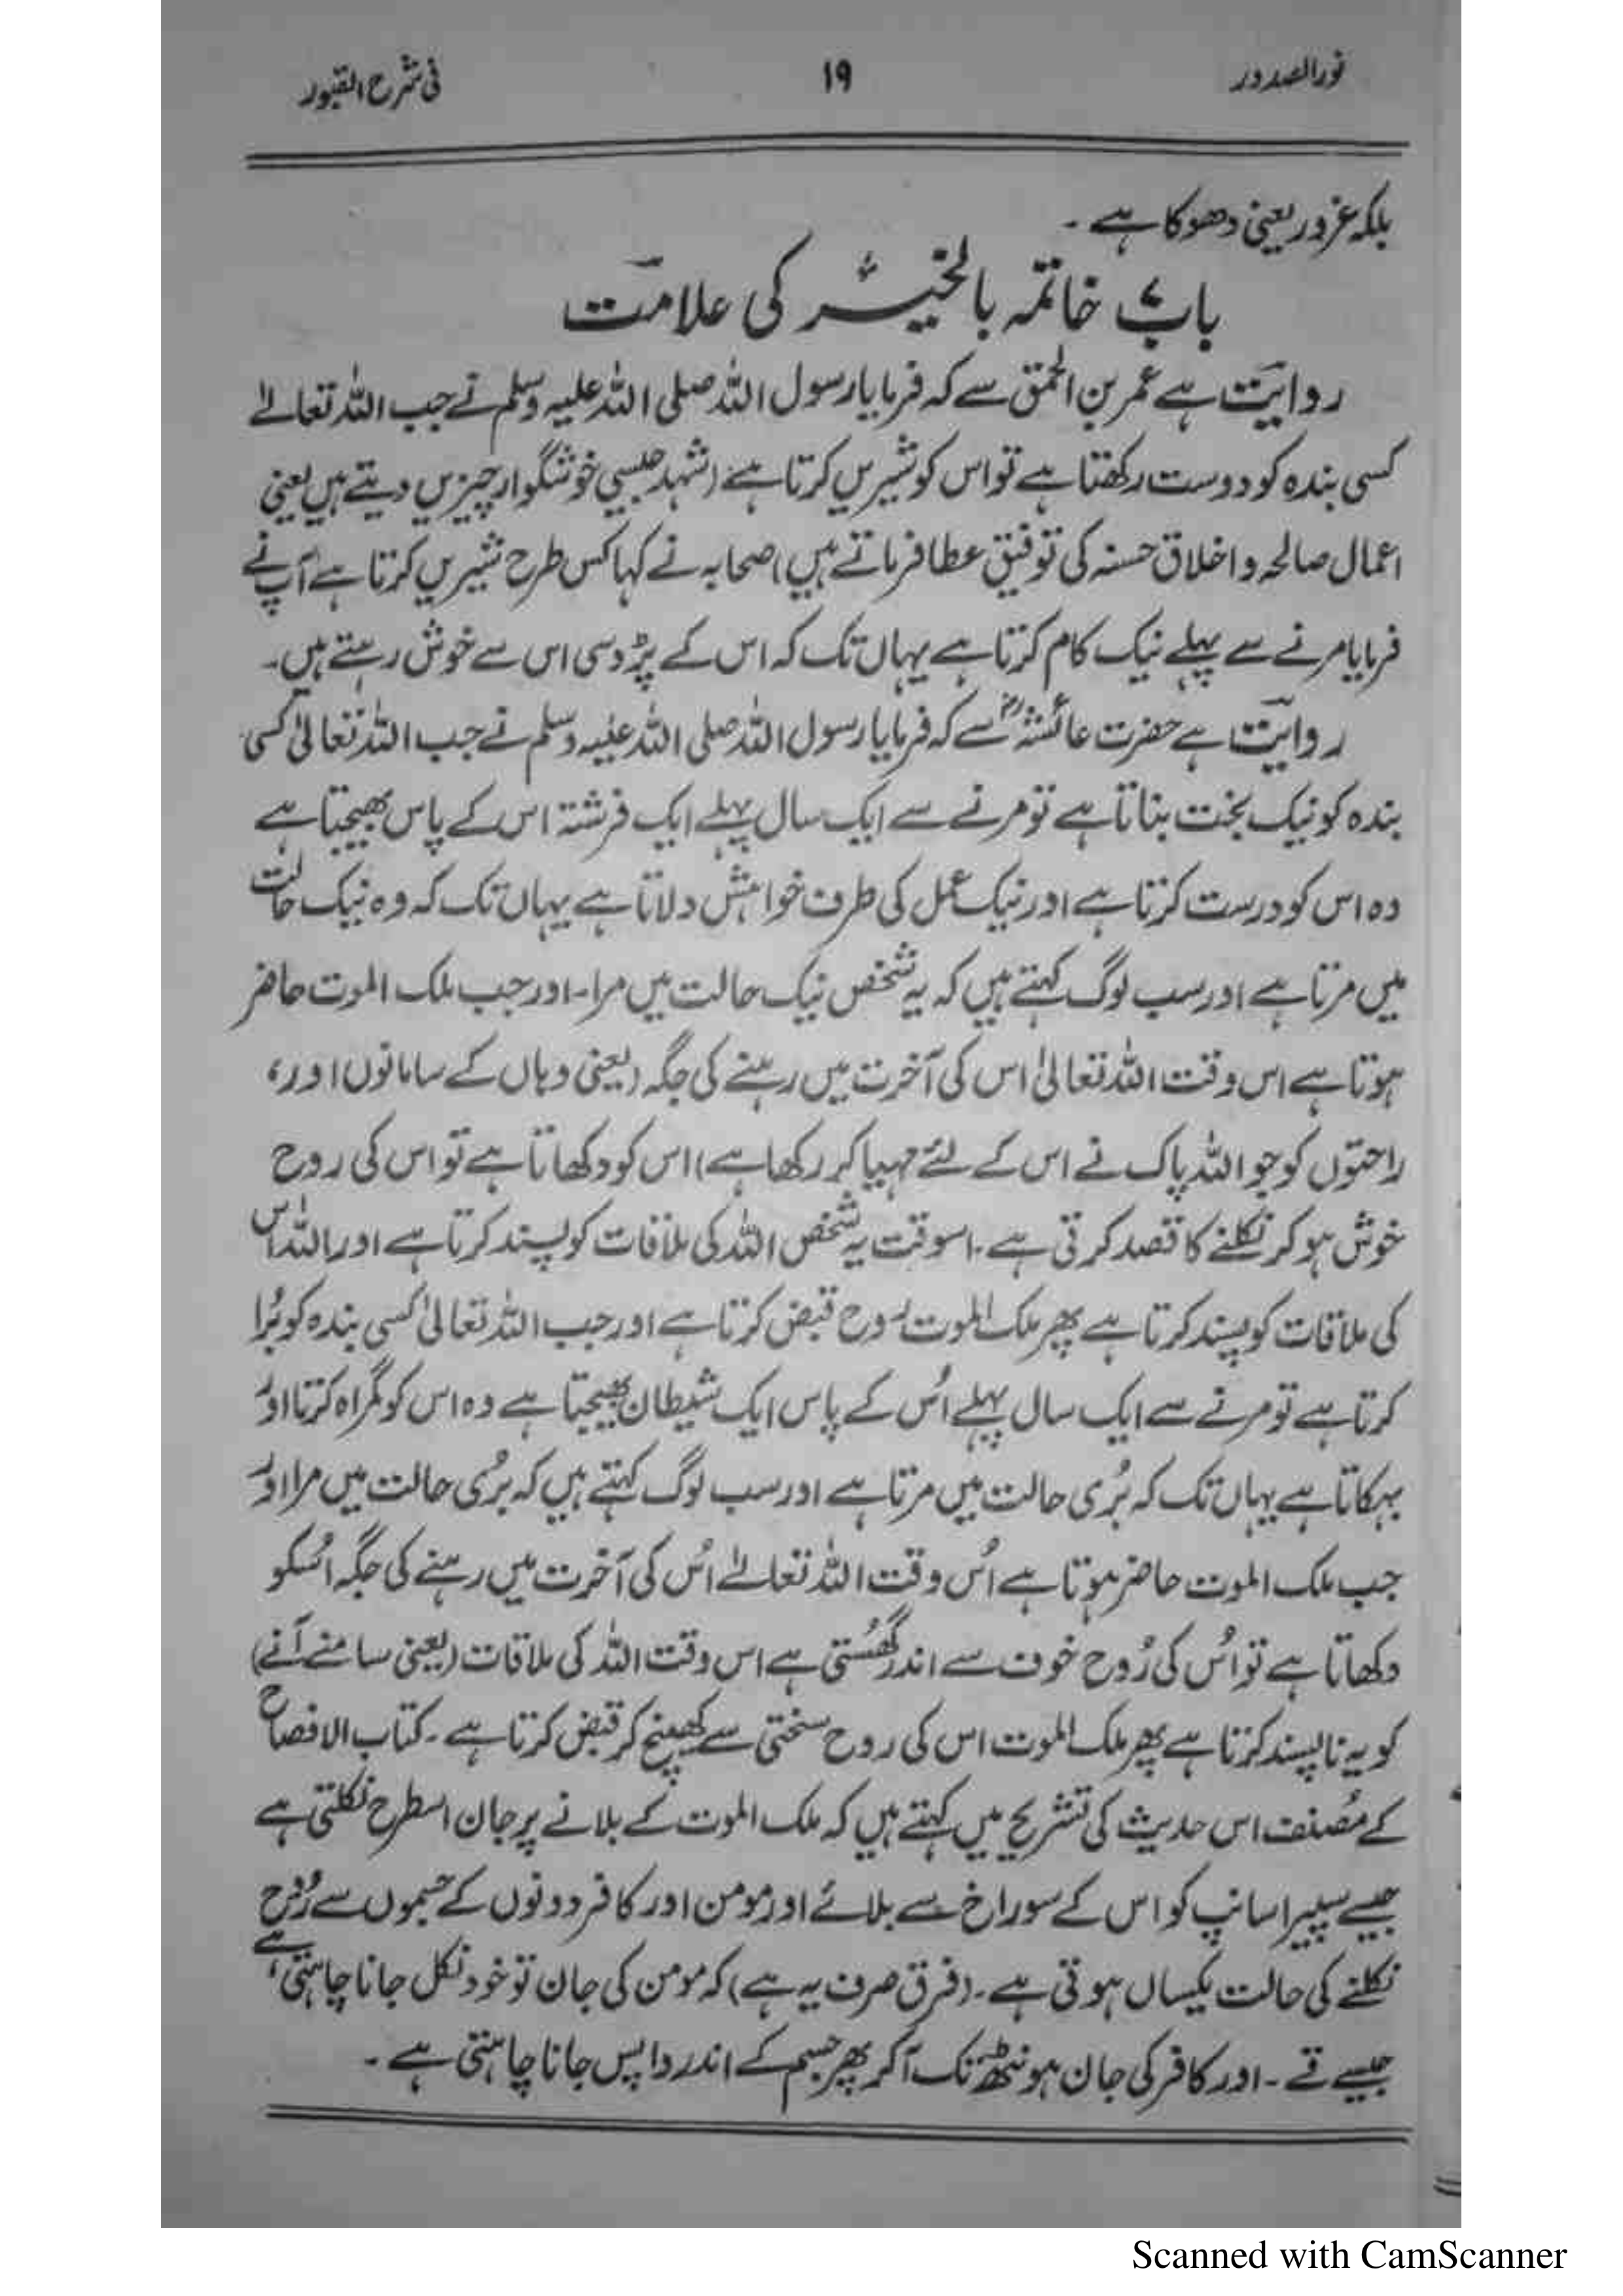 نورالصدور ۱۹ فی شرح القبور
بلکہ غرور یعنی دھوکا ہے ۔
باب خاتمہ بالخیر کی علامت
روایت ہے عمر بن الحمق سے کہ فرمایا رسول اللہ صلی اللہ علیہ وسلم نے جب اللہ تعالےٰ
کسی بندہ کو دوست رکھتا ہے تو اس کو شیریں کرتا ہے (شہد جیسی خوشگوار چیزیں دیتے ہیں یعنی
اعمال صالحہ و اخلاق حسنہ کی توفیق عطا فرماتے ہیں) صحابہ نے کہا کس طرح شیریں کرتا ہے آپ نے
فرمایا مرنے سے پہلے نیک کام کرتا ہے یہاں تک کہ اس کے پڑوسی اس سے خوش رہتے ہیں۔
روایت ہے حضرت عائشہؓ سے کہ فرمایا رسول اللہ صلی اللہ علیہ وسلم نے جب اللہ تعالیٰ کسی
بندہ کو نیک بخت بناتا ہے تو مرنے سے ایک سال پہلے ایک فرشتہ اس کے پاس بھیجتا ہے
وہ اس کو درست کرتا ہے اور نیک عمل کی طرف خواہش دلاتا ہے یہاں تک کہ وہ نیک حالت
میں مرتا ہے اور سب لوگ کہتے ہیں کہ یہ شخص نیک حالت میں مرا۔ اور جب ملک الموت حاضر
ہوتا ہے اس وقت اللہ تعالیٰ اس کی آخرت میں رہنے کی جگہ (یعنی وہاں کے سامانوں اور،
راحتوں کو جو اللہ پاک نے اس کے لئے مہیا کر رکھا ہے) اس کو دکھاتا ہے تو اس کی روح
خوش ہو کر نکلنے کا قصد کرتی ہے ۔ اسوقت یہ شخص اللہ کی ملاقات کو پسند کرتا ہے اور اللہ اس
کی ملاقات کو پسند کرتا ہے پھر ملک الموت روح قبض کرتا ہے اور جب اللہ تعالیٰ کسی بندہ کو بُرا
کرتا ہے تو مرنے سے ایک سال پہلے اُس کے پاس ایک شیطان بھیجتا ہے وہ اس کو گمراہ کرتا اور
بہکاتا ہے یہاں تک کہ بُری حالت میں مرتا ہے اور سب لوگ کہتے ہیں کہ بُری حالت میں مرا اور
جب ملک الموت حاضر ہوتا ہے اُس وقت اللہ تعالےٰ اُس کی آخرت میں رہنے کی جگہ اُسکو
دکھاتا ہے تو اُس کی رُوح خوف سے اندر گھُستی ہے اس وقت اللہ کی ملاقات (یعنی سامنے آنے)
کو یہ ناپسند کرتا ہے پھر ملک الموت اس کی روح سختی سے کھینچ کر قبض کرتا ہے ۔ کتاب الافصاح
کے مُصنف اس حدیث کی تشریح میں کہتے ہیں کہ ملک الموت کے بلانے پر جان اسطرح نکلتی ہے
جیسے سپیرا سانپ کو اس کے سوراخ سے بلائے اور مومن اور کافر دونوں کے جسموں سے رُوح
نکلنے کی حالت یکساں ہوتی ہے ۔ (فرق صرف یہ ہے) کہ مومن کی جان تو خود نکل جانا چاہتی ہے،
جیسے قے ۔ اور کافر کی جان ہونٹھ تک آکر پھر جسم کے اندر واپس جانا چاہتی ہے ۔
Scanned with CamScanner